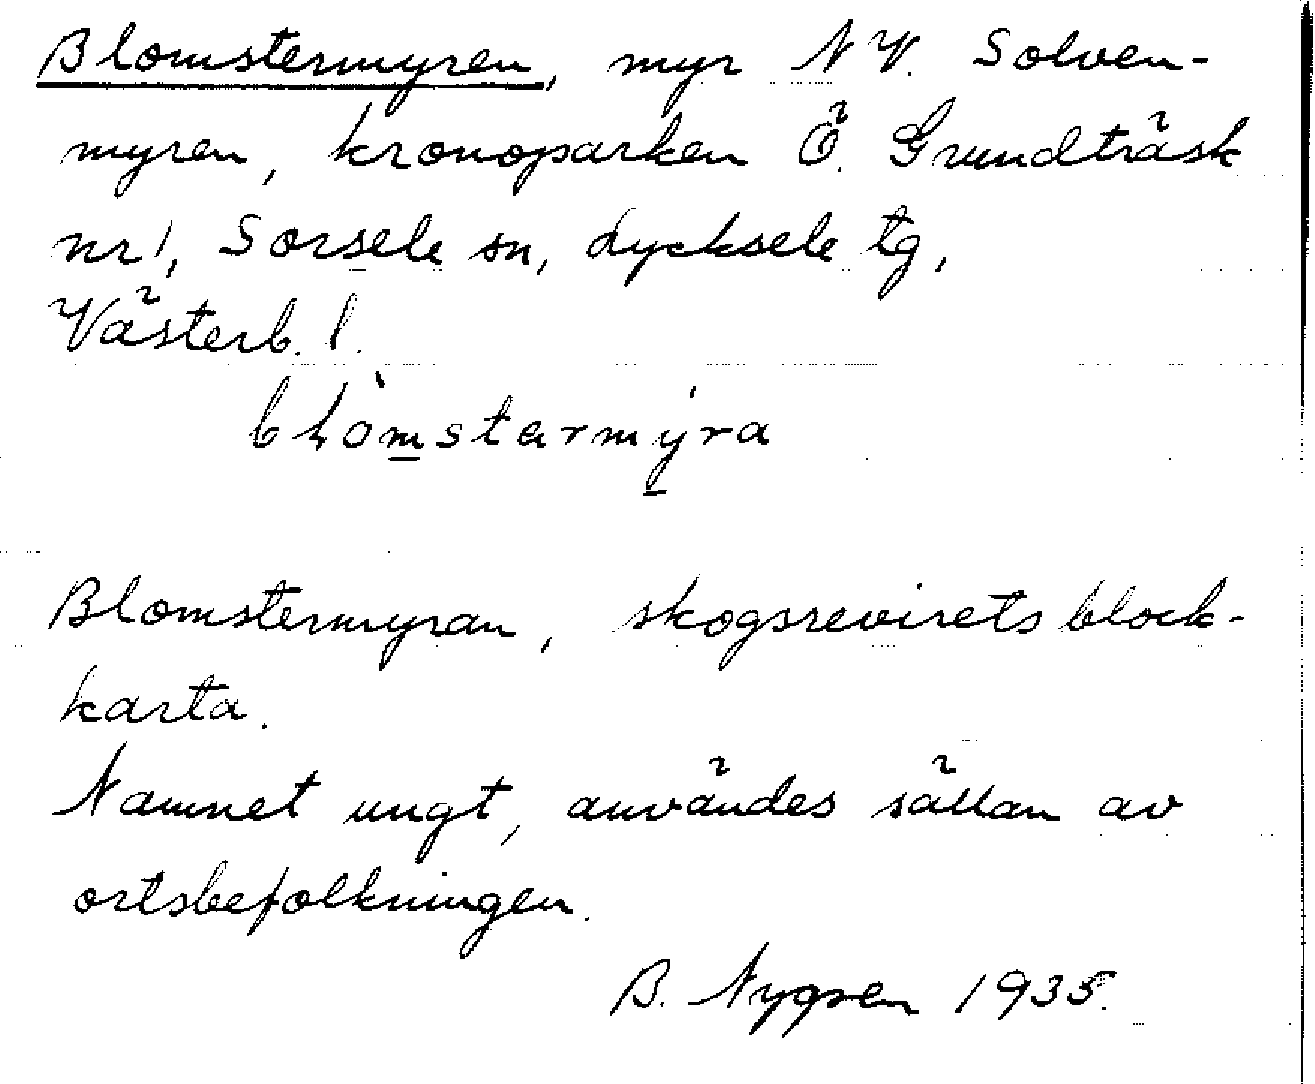 Blomstermyren, myr NV. Solven-
myren, kronoparken Ö. Grundträsk
nr 1, Sorsele sn, Lycksele tg,
Västerb. l.
blòmstarmýra
Blomstermyran, skogsrevirets block-
karta.
Namnet ungt, användes sällan av
ortsbefolkningen.
B. Nygren 1935.